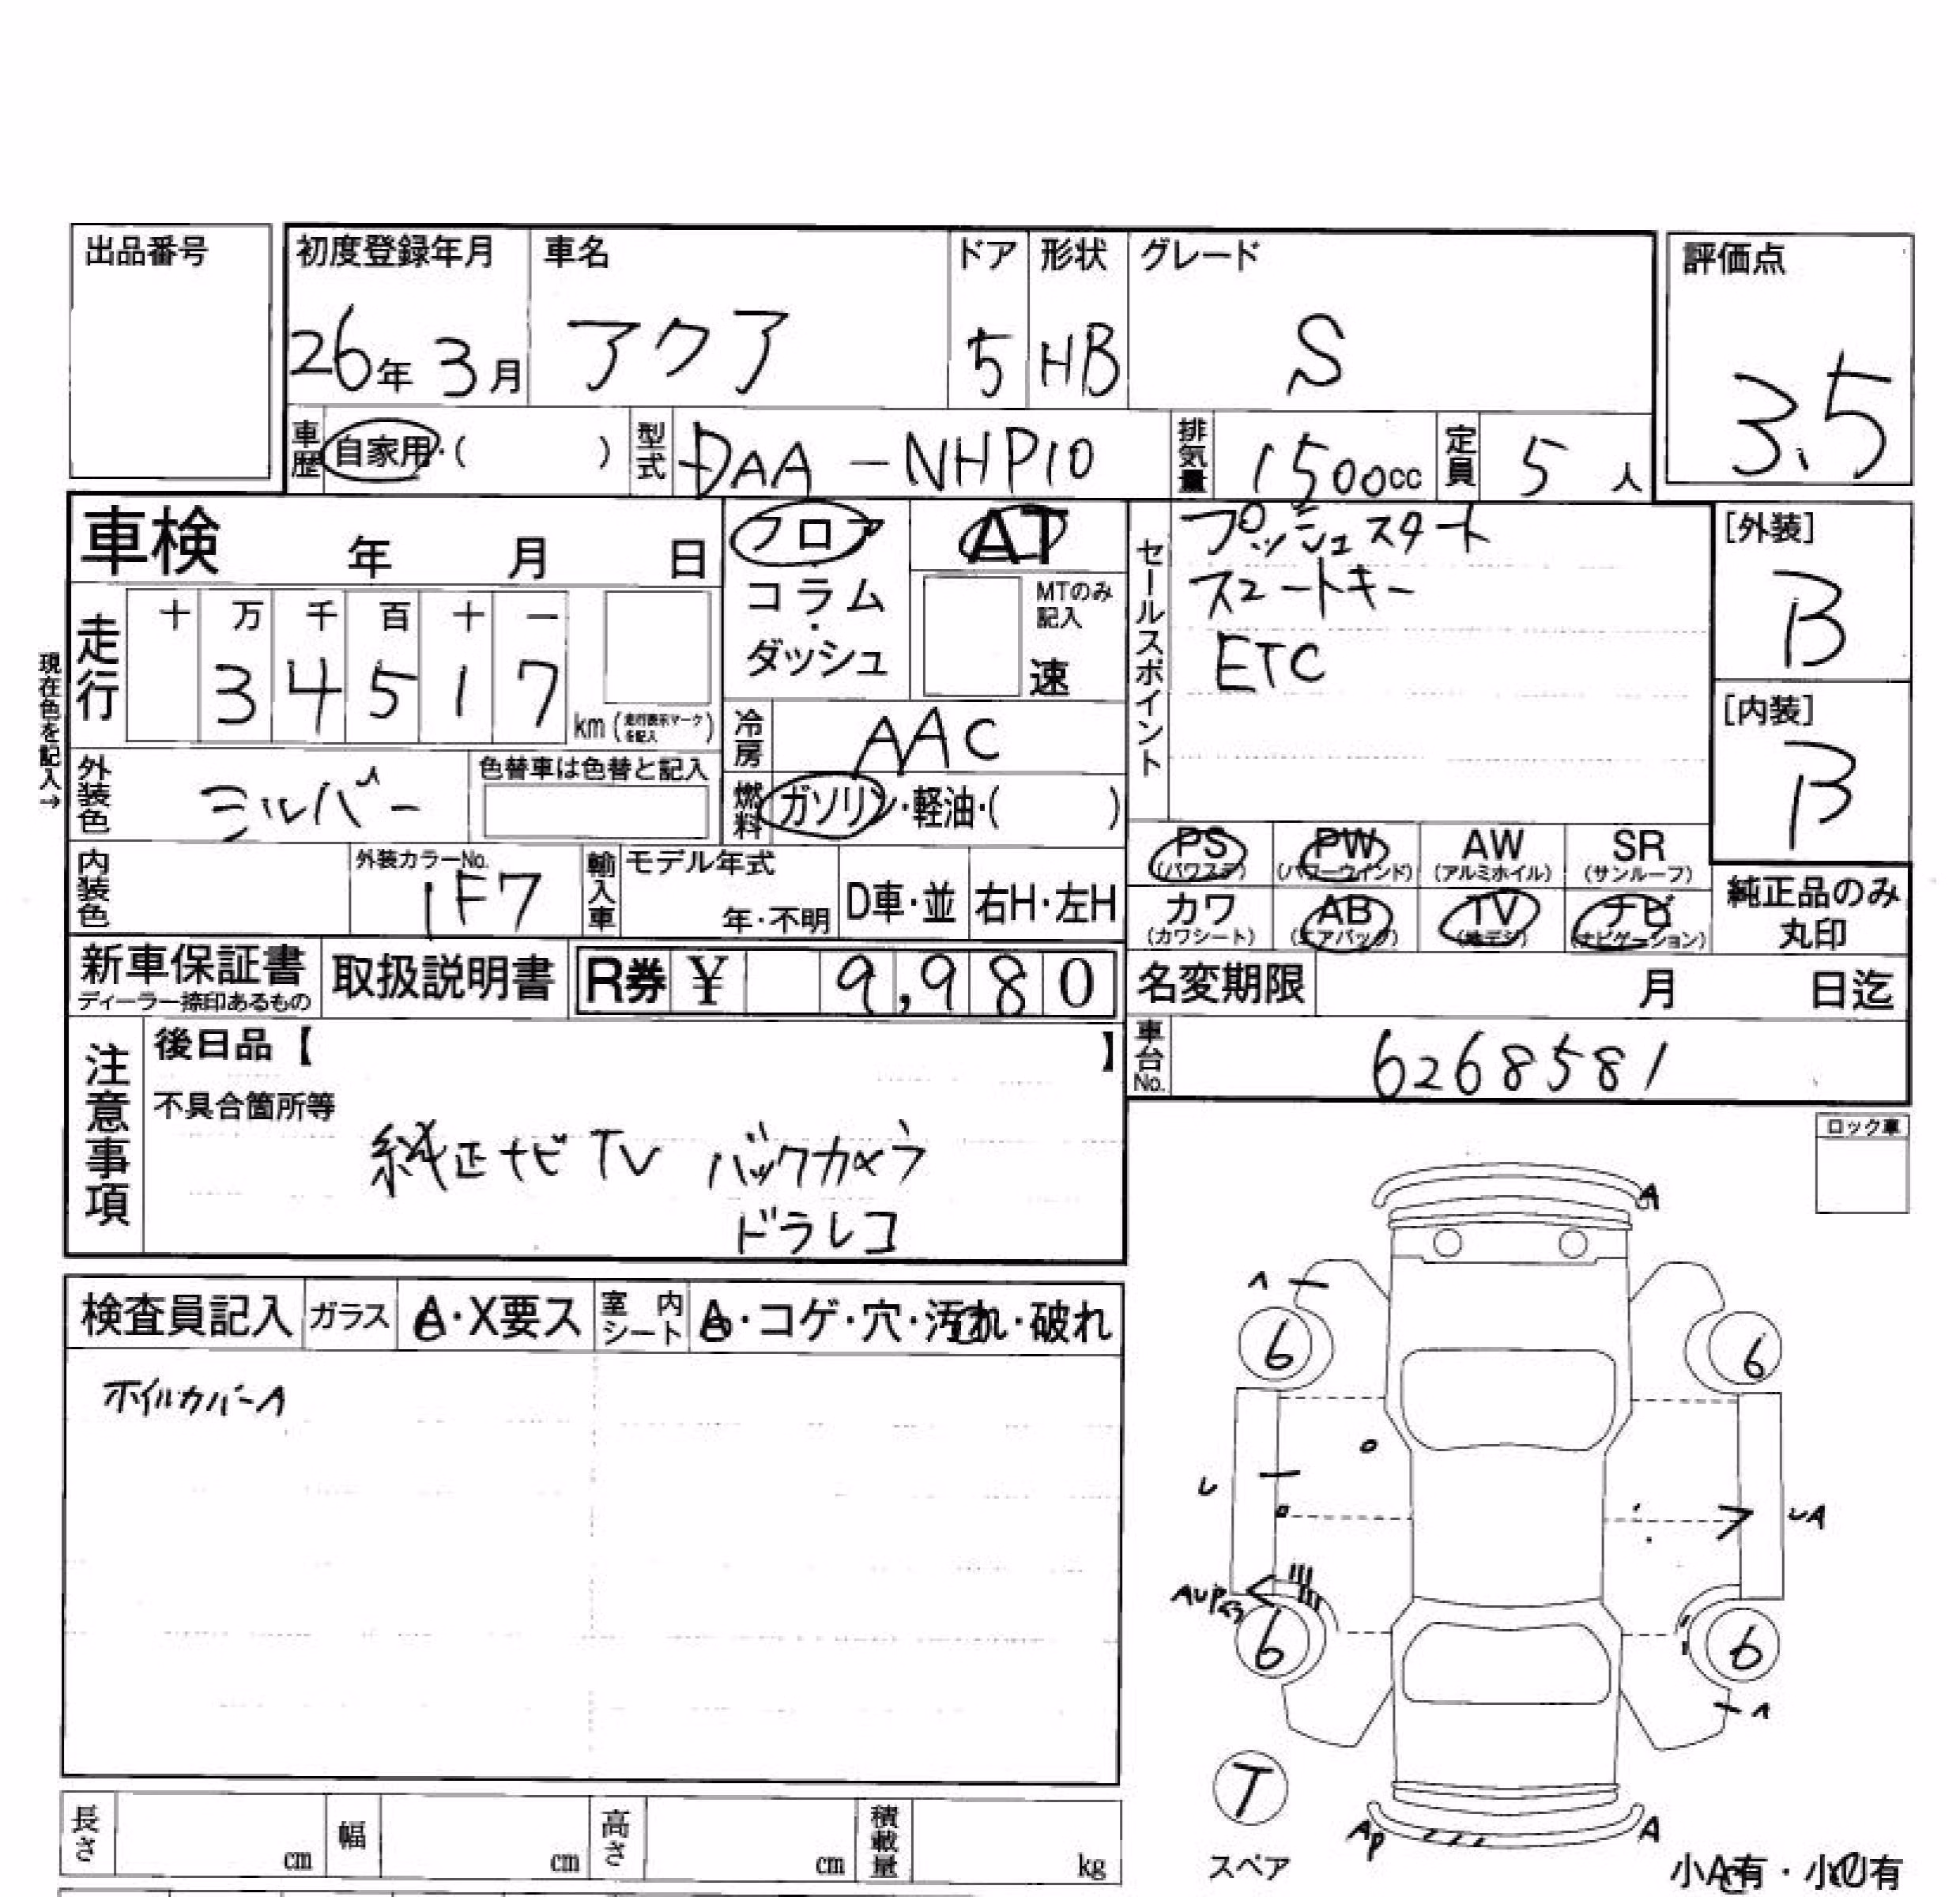 出品番号
初度登録年月 車名 ドア 形状 グレード 評価点
26年 3月 アクア 5 HB S 3.5
車歴 自家用・( ) 型式 DAA-NHP10 排気量 1500cc 定員 5人
車検 年 月 日
フロア コラム・ダッシュ
AT MTのみ記入 速
セールスポイント
プッシュスタート
スマートキー
ETC
[外装] B
[内装] B
現在色を記入→
走行 十 万 千 百 十 一
3 4 5 1 7 km (走行表示マークを記入)
冷房 AAC
外装色 シルバー 色替車は色替と記入
燃料 ガソリン・軽油・( )
PS (パワステ) PW (パワーウインド) AW (アルミホイル) SR (サンルーフ)
カワ (カワシート) AB (エアバッグ) TV (地デジ) ナビ (ナビゲーション)
純正品のみ丸印
内装色 外装カラーNo. 1F7 輸入車 モデル年式 年・不明 D車・並 右H・左H
新車保証書 ディーラー捺印あるもの 取扱説明書 R券 ¥ 9,980
名変期限 月 日迄
車台No. 6268581
注意事項
後日品【 】
不具合箇所等
純正ナビTV バックカメラ
ドラレコ
ロック車
検査員記入 ガラス A・X要ス 室内シート A・コゲ・穴・汚れ・破れ
ホイルカバーA
A
A
6 6
U
UA
6 6
A
T
スペア
AP A
小A有・小U有
長さ cm 幅 cm 高さ cm 積載量 kg